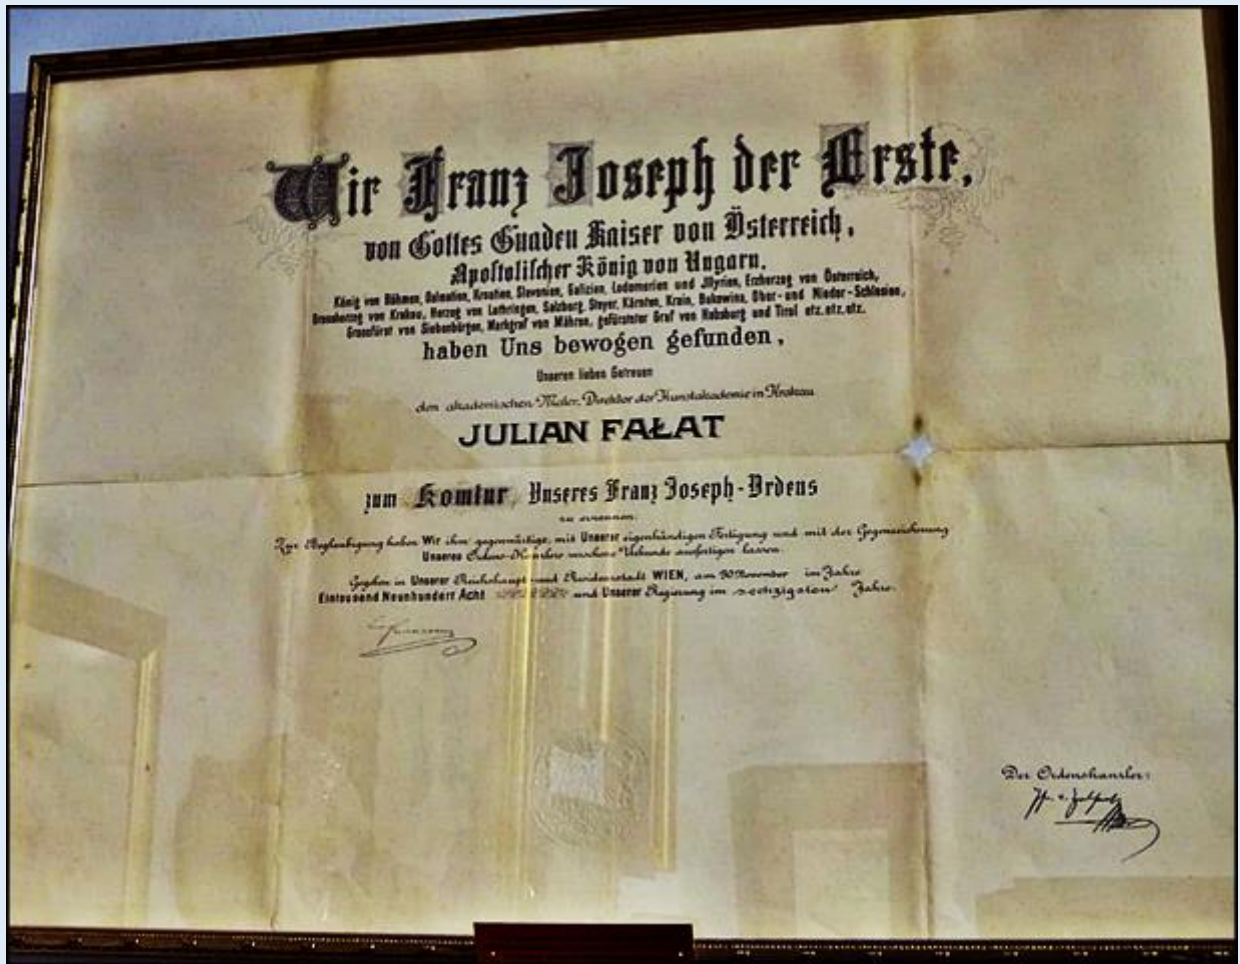 Wir Franz Joseph der Erste,
von Gottes Gnaden Kaiser von Österreich,
Apostolischer König von Ungarn,
König von Böhmen, Dalmatien, Kroatien, Slavonien, Galizien, Lodomerien und Jllyrien, Erzherzog von Österreich,
Grossherzog von Krakau, Herzog von Lothringen, Salzburg, Steyer, Kärnten, Krain, Bukowina, Ober- und Nieder-Schlesien,
Grossfürst von Siebenbürgen, Markgraf von Mähren, gefürsteter Graf von Habsburg und Tirol etz. etz. etz.
haben Uns bewogen gefunden,
Unseren lieben Getreuen
den akademischen Maler, Direktor der Kunstakademie in Krakau
JULIAN FAŁAT
zum Komtur Unseres Franz Joseph-Ordens
zu ernennen.
Zur Beglaubigung haben Wir ihm gegenwärtige, mit Unserer eigenhändigen Fertigung und mit der Gegenzeichnung
Unseres Ordens-Kanzlers versehene Urkunde ausfertigen lassen.
Gegeben in Unserer Reichshaupt- und Residenzstadt WIEN, am 30 November im Jahre
Eintausend Neunhundert Acht und Unserer Regierung im sechzigsten Jahre.
Der Ordenskanzler: